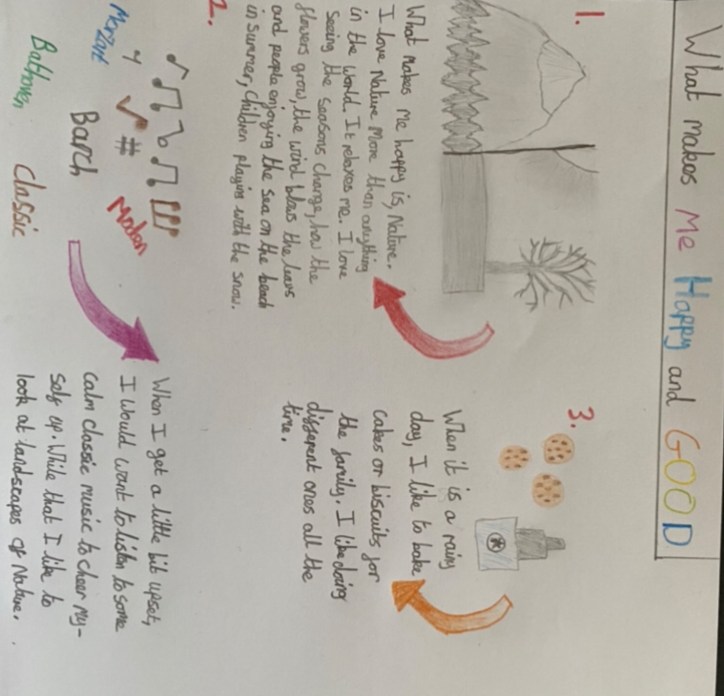 What makes Me Happy and GOOD
1.
What makes me happy is, Nature.
I love Nature more than anything
in the world. It relaxes me. I love
seeing the seasons change, how the
flowers grow, the wind blows the leavs
and people enjoying the sea on the beach
in summer, children playing with the snow.
2.
Mozart
Barch
Maken
Bathoven
Classic
When I get a little bit upset,
I would want to listen to some
calm classic music to cheer my-
self up. While that I like to
look at landscapes of Nature.
3.
When it is a rainy
day, I like to bake
cakes or biscuits for
the family. I like doing
different ones all the
time.